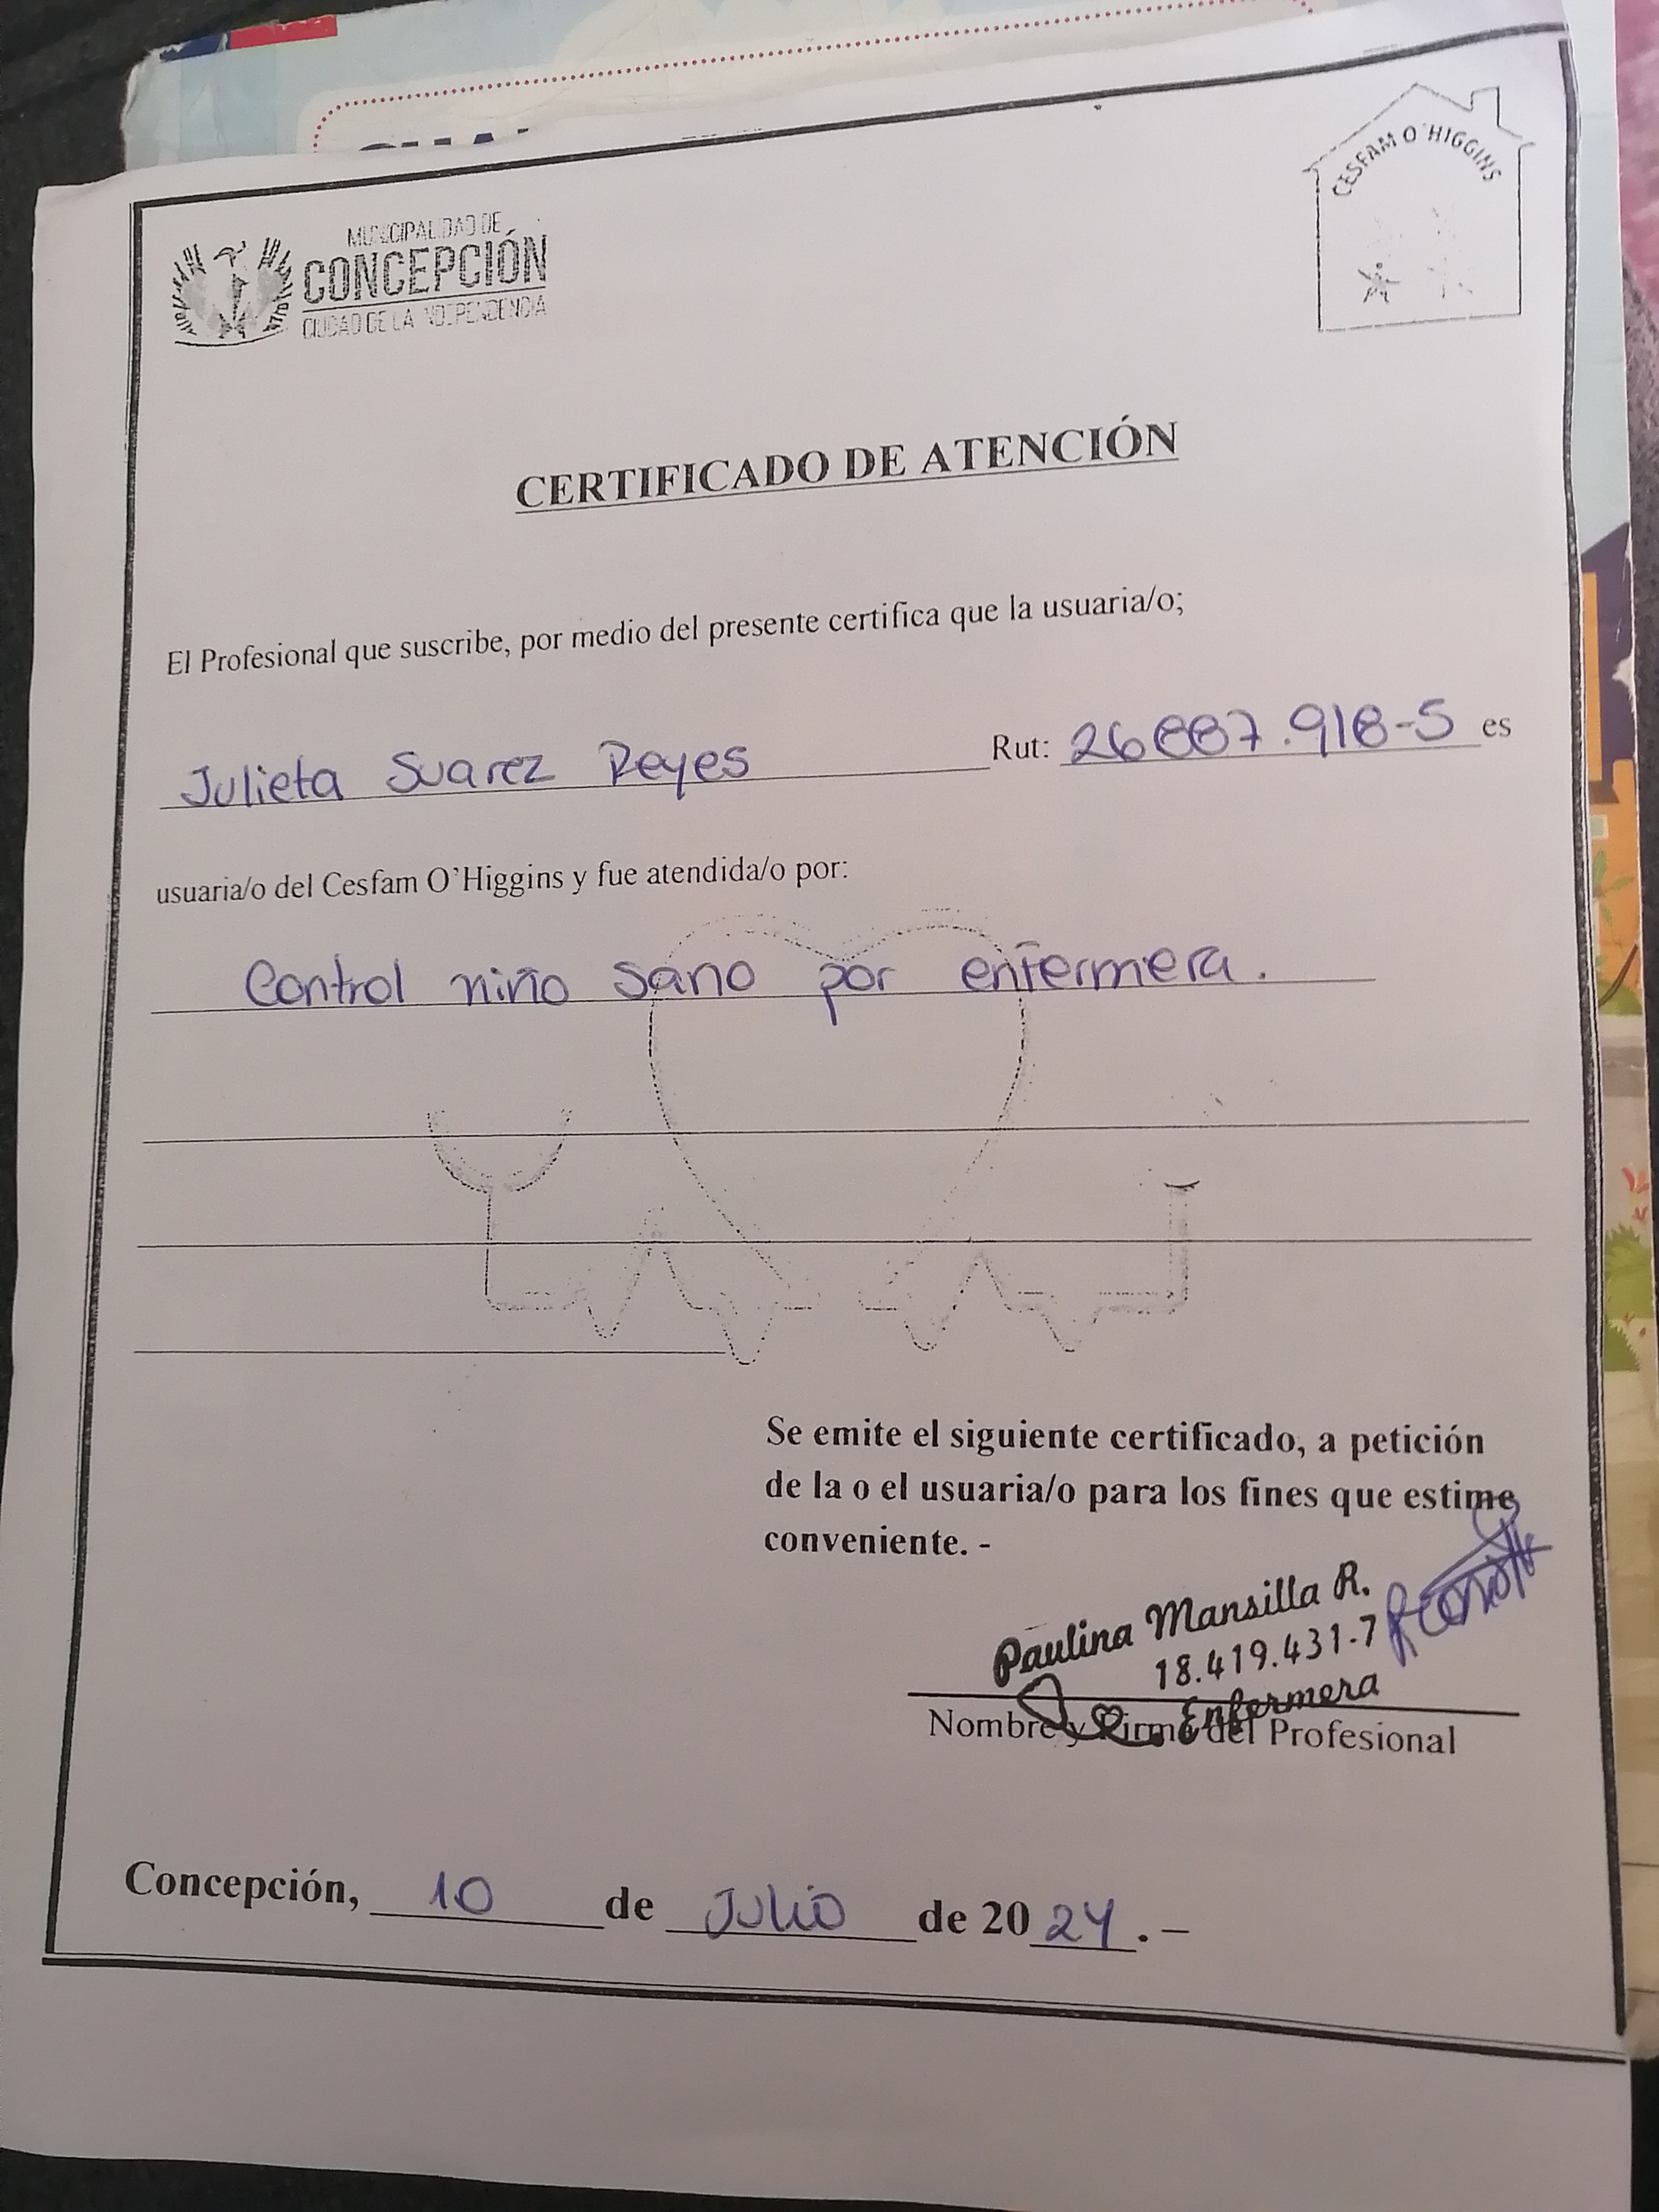 MUNICIPALIDAD DE
CONCEPCIÓN
CIUDAD DE LA INDEPENDENCIA
CESFAM O'HIGGINS
CERTIFICADO DE ATENCIÓN
El Profesional que suscribe, por medio del presente certifica que la usuaria/o;
Julieta Suarez Reyes Rut: 26887.918-5 es
usuaria/o del Cesfam O'Higgins y fue atendida/o por:
Control niño sano por enfermera.
Se emite el siguiente certificado, a petición
de la o el usuaria/o para los fines que estime
conveniente. -
Paulina Mansilla R.
18.419.431-7
Enfermera
Nombre y Firma del Profesional
Concepción, 10 de Julio de 2024. –